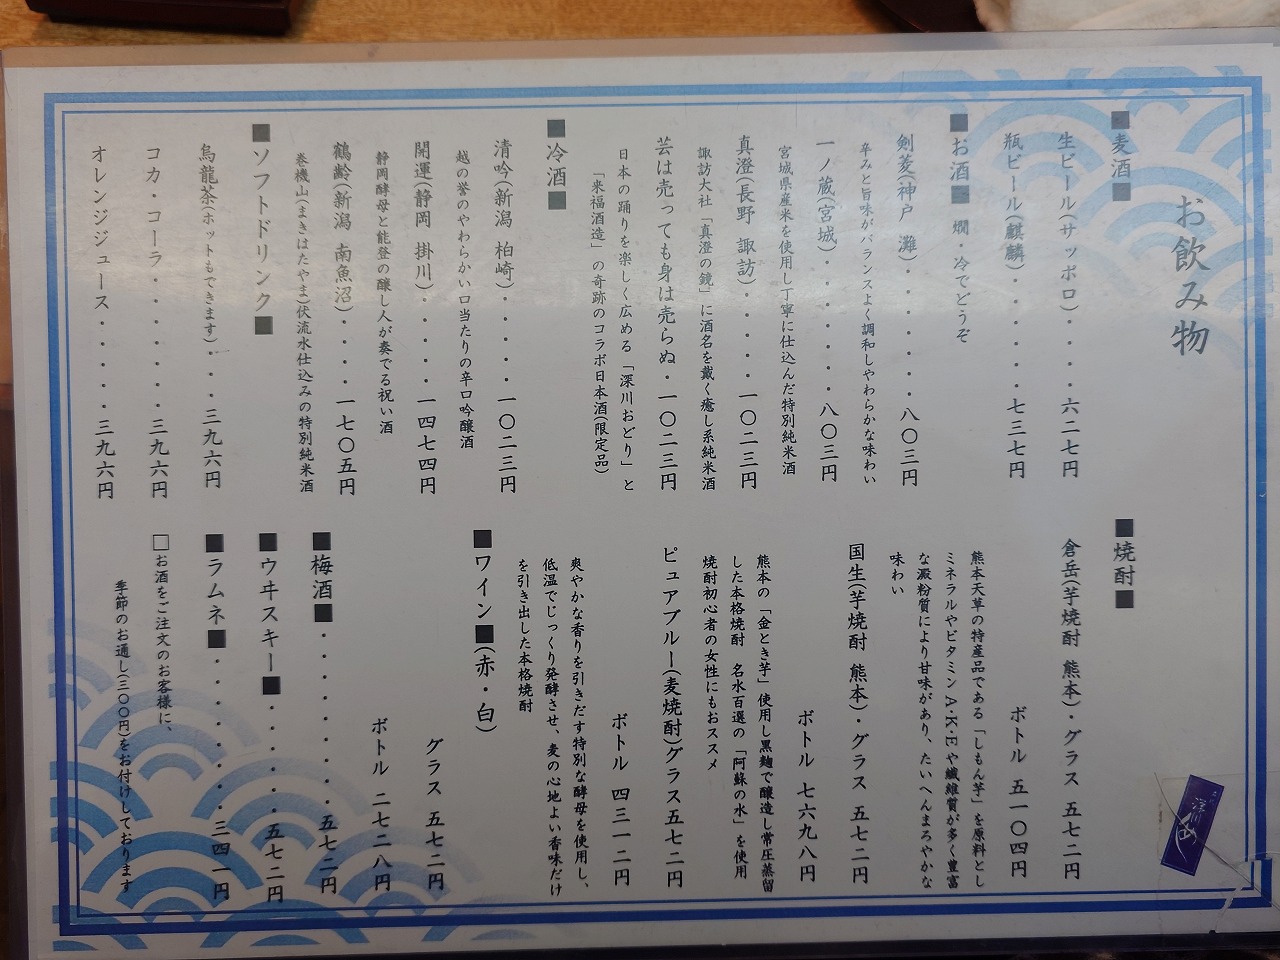 お飲み物
■麦酒■
生ビール(サッポロ)・・・・六二七円
瓶ビール(麒麟)・・・・・・七三七円
■お酒■ 燗・冷でどうぞ
剣菱(神戸 灘)・・・・・・・八〇三円
辛みと旨味がバランスよく調和しやわらかな味わい
一ノ蔵(宮城)・・・・・・・八〇三円
宮城県産米を使用し丁寧に仕込んだ特別純米酒
真澄(長野 諏訪)・・・・・一〇二三円
諏訪大社「真澄の鏡」に酒名を戴く癒し系純米酒
芸は売っても身は売らぬ・一〇二三円
日本の踊りを楽しく広める「深川おどり」と
「来福酒造」の奇跡のコラボ日本酒(限定品)
■冷酒■
清吟(新潟 柏崎)・・・・・一〇二三円
越の誉のやわらかい口当たりの辛口吟醸酒
開運(静岡 掛川)・・・・・一四七四円
静岡酵母と能登の醸し人が奏でる祝い酒
鶴齢(新潟 南魚沼)・・・・一七〇五円
巻機山(まきはたやま)伏流水仕込みの特別純米酒
■ソフトドリンク■
烏龍茶(ホットもできます)・・・三九六円
コカ・コーラ・・・・・・・三九六円
オレンジジュース・・・・・三九六円
■焼酎■
倉岳(芋焼酎 熊本)・グラス 五七二円
ボトル 五一〇四円
熊本天草の特産品である「しもん芋」を原料とし
ミネラルやビタミンA・K・Eや繊維質が多く豊富
な澱粉質により甘味があり、たいへんまろやかな
味わい
国生(芋焼酎 熊本)・グラス 五七二円
ボトル 七六九八円
熊本の「金とき芋」使用し黒麹で醸造し常圧蒸留
した本格焼酎 名水百選の「阿蘇の水」を使用
焼酎初心者の女性にもおススメ
ピュアブルー(麦焼酎)グラス五七二円
ボトル 四三一二円
爽やかな香りを引きだす特別な酵母を使用し、
低温でじっくり発酵させ、麦の心地よい香味だけ
を引き出した本格焼酎
■ワイン■(赤・白)
グラス 五七二円
ボトル 二七二八円
■梅酒■・・・・・・・・・五七二円
■ウヰスキー■・・・・・・五七二円
■ラムネ■・・・・・・・・三四一円
□お酒をご注文のお客様に、
季節のお通し(三〇〇円)をお付けしております